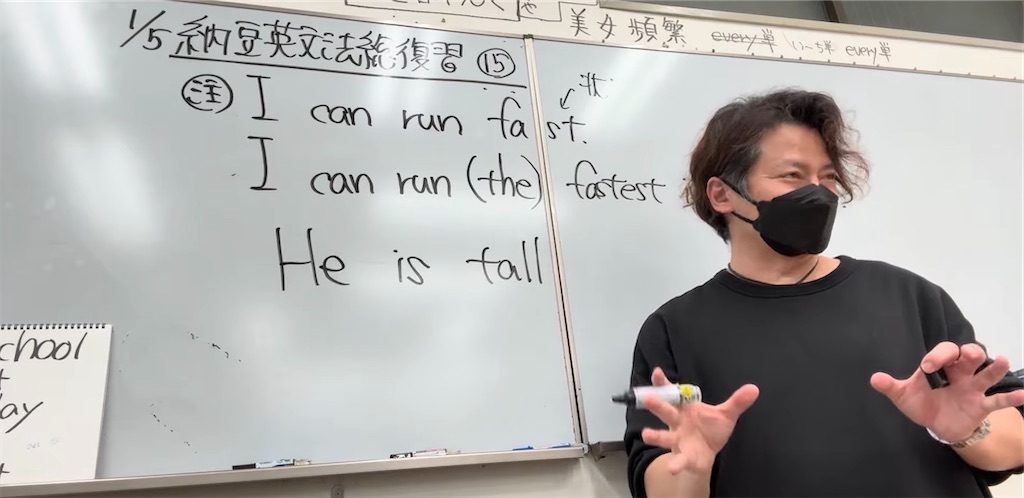 美女頻繁 every単 い〜ち単 every単
1/5 納豆英文法能復習 ⑮
㊟ I can run fast.
I can run (the) fastest
He is tall
chool
ay